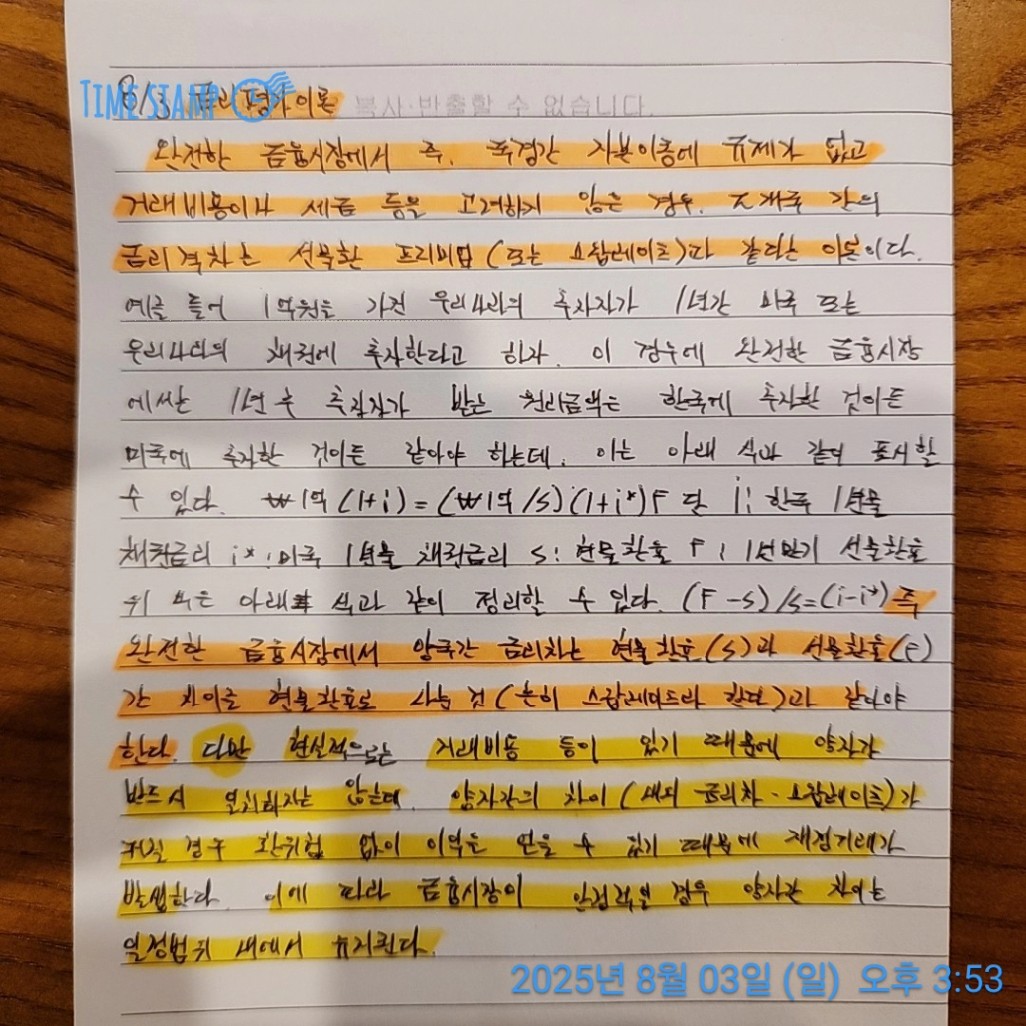 TIME STAMP
8/3 금리평가이론
복사·반출할 수 없습니다.
완전한 금융시장에서 즉, 국경간 자본이동에 규제가 없고
거래비용이나 세금 등을 고려하지 않은 경우, 두 개국 간의
금리격차는 선물환 프리미엄(또는 스왑레이트)과 같다는 이론이다.
예를 들어 1억원을 가진 우리나라의 투자자가 1년간 미국 또는
우리나라의 채권에 투자한다고 하자. 이 경우에 완전한 금융시장
에서는 1년 후 투자자가 받는 원리금액은 한국에 투자한 것이든
미국에 투자한 것이든 같아야 하는데, 이는 아래 식과 같이 표시할
수 있다. ₩1억(1+i)=(₩1억/S)(1+i*)F 단 i: 한국 1년물
채권금리 i*: 미국 1년물 채권금리 S: 현물환율 F: 1년만기 선물환율
위 식은 아래 식과 같이 정리할 수 있다. (F-S)/S=(i-i*) 즉
완전한 금융시장에서 양국간 금리차는 현물환율(S)과 선물환율(F)
간 차이를 현물환율로 나눈 것(흔히 스왑레이트라 한다)과 같아야
한다. 다만 현실적으로는 거래비용 등이 있기 때문에 양자가
반드시 일치하지는 않는데, 양자간의 차이(내외 금리차-스왑레이트)가
커질 경우 환위험 없이 이익을 얻을 수 있기 때문에 재정거래가
발생한다. 이에 따라 금융시장이 안정적인 경우 양자간 차이는
일정범위 내에서 유지된다.
2025년 8월 03일 (일) 오후 3:53